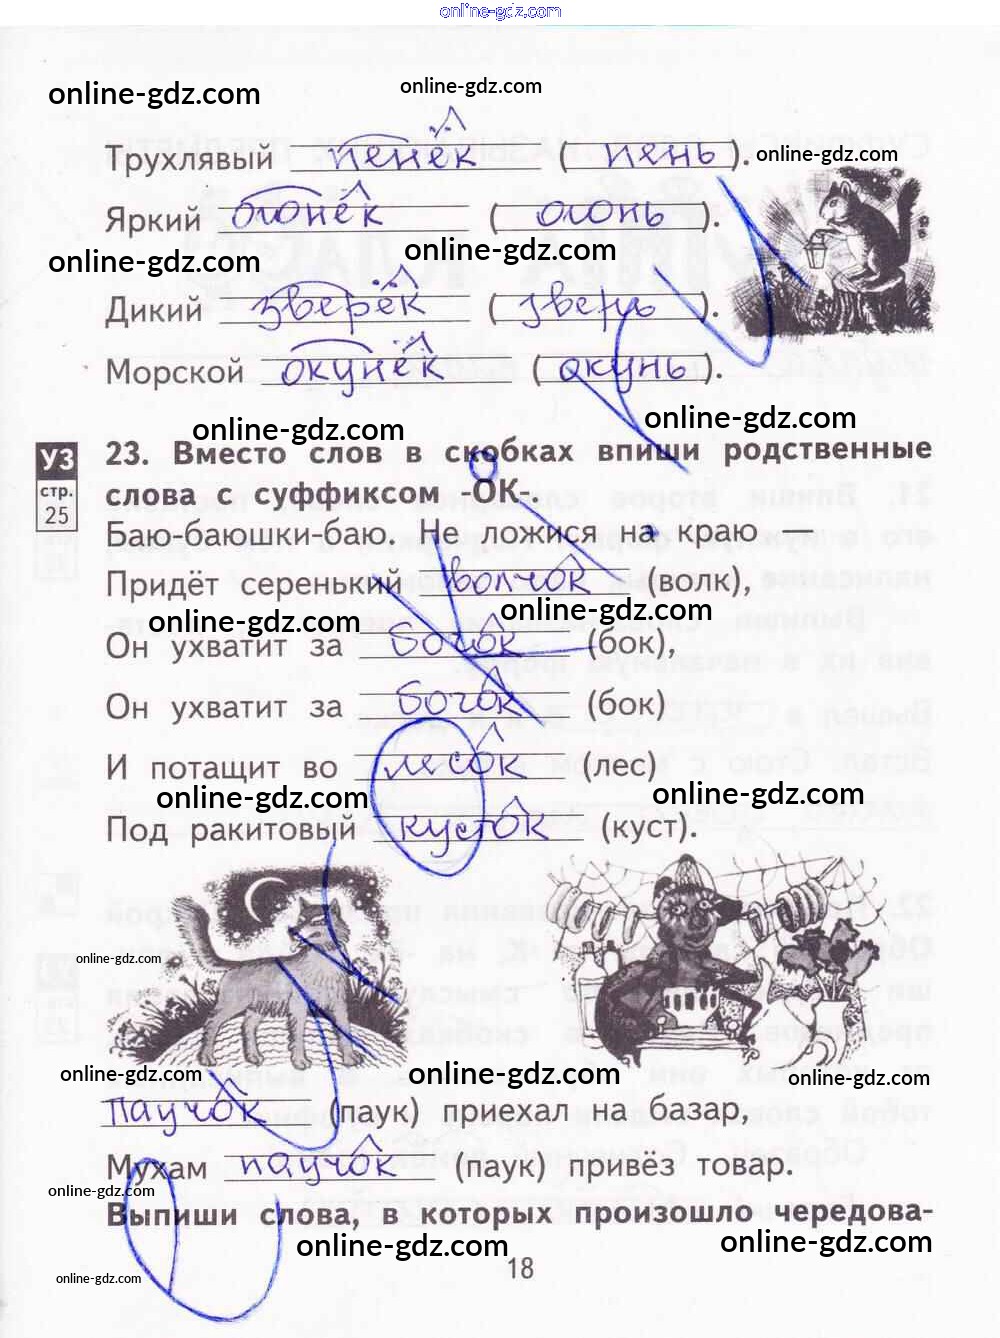 online-gdz.com
online-gdz.com online-gdz.com
Трухлявый пенёк ( пень ). online-gdz.com
Яркий огонёк ( огонь ).
online-gdz.com online-gdz.com
Дикий зверёк ( зверь ).
Морской окунёк ( окунь ).
online-gdz.com online-gdz.com
УЗ стр. 25
23. Вместо слов в скобках впиши родственные
слова с суффиксом -ОК-.
Баю-баюшки-баю. Не ложися на краю —
Придёт серенький волчок (волк),
online-gdz.com online-gdz.com
Он ухватит за бочок (бок),
Он ухватит за бочок (бок)
И потащит во лесок (лес)
online-gdz.com online-gdz.com
Под ракитовый кусток (куст).
online-gdz.com
online-gdz.com online-gdz.com online-gdz.com
паучок (паук) приехал на базар,
Мухам паучок (паук) привёз товар.
online-gdz.com
Выпиши слова, в которых произошло чередова-
online-gdz.com online-gdz.com
18
online-gdz.com